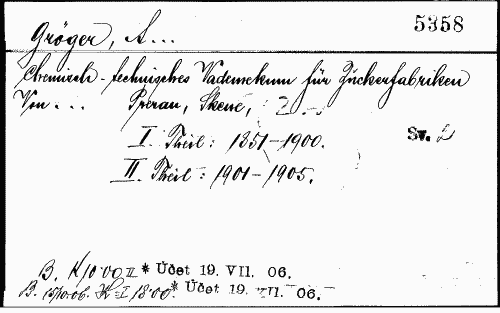 5358
Gröger, A...
Chemisch-technisches Vademekum für Zuckerfabriken
Von... Prerau, Skene,
I. Theil: 1851–1900. Sv. 2
II. Theil: 1901–1905.
B. K 10·00 II * Účet 19. VII. 06.
B. 15/10.06. K I 18·00. * Účet 19. VII. 06.